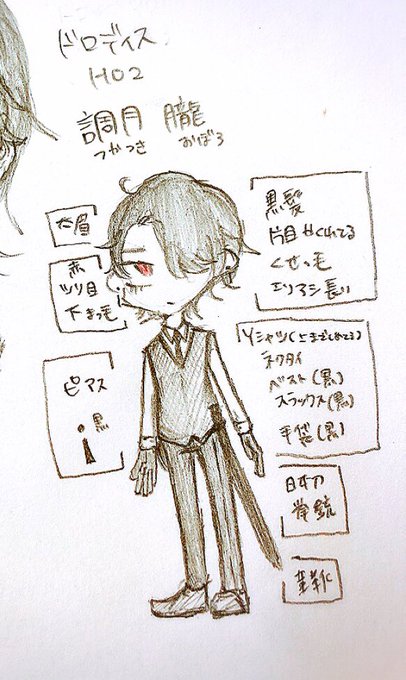 ドロディス
HO2
調月 朧
つかつき おぼろ
太眉
赤
ツリ目
下まつ毛
ピアス
黒
黒髪
片目かくれてる
くせっ毛
エリアシ長い
Yシャツ(上までしめてる)
ネクタイ
ベスト(黒)
スラックス(黒)
手袋(黒)
日本刀
拳銃
革靴